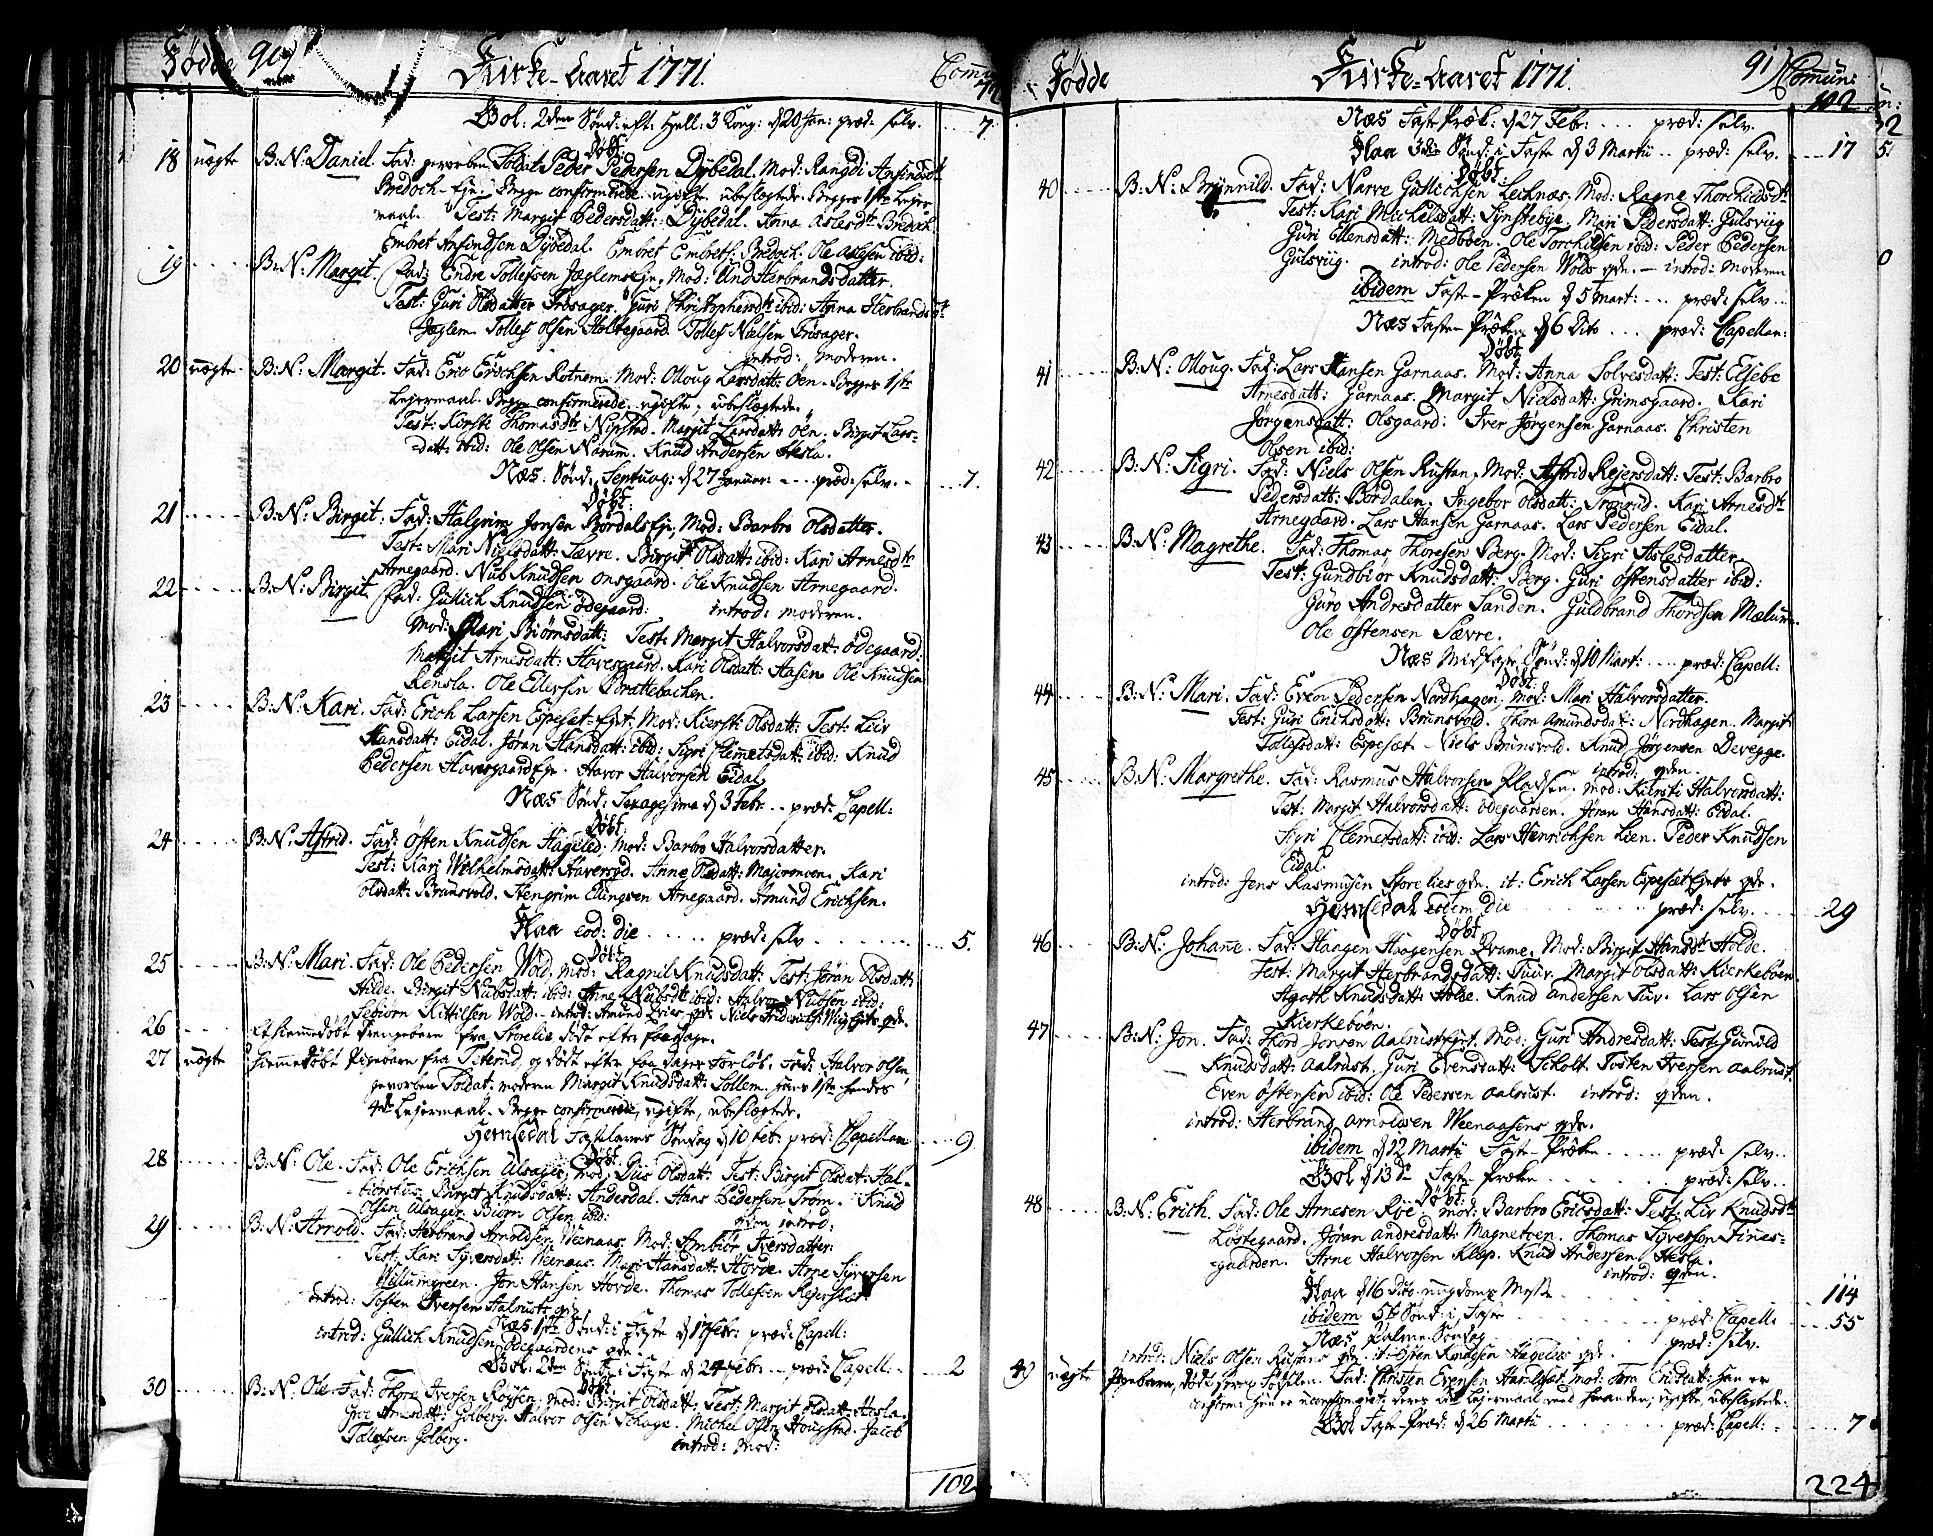 Fødde 90 Kirke-Aaret 1771. Comm:
Gol: 2den Sønd: eft: Hell: 3 Kong: d 20 Jan: præd: selv. 7.
Døbt:
18 uægte B: N: Daniel. Fad: gevorben Soldat Peder Pedersen Dybedal. Mod: Rangdi Ansindsdt
Bredoch-Eje: Begge confirmerede ugifte ubeslegtede. Begges 1ste Lejer
maal. Test: Margit Pedersdatt: Dybedal. Anna Aslesdtr Bredoch.
Embret Ansindsen Dybedal. Embret Embretss: Bredoch. Ole Aslesen ibid:
19 B: N: Margit. Fad: Endre Tollefsen Jæglems Eje, Mod: Und Herbrandsdatter.
Test: Guri Olsdatter Frøsager. Guri Christophersdt ibid: Anna Herbrandsdt
Jæglem. Tollef Olsen Holtegaard. Tollef Nielsen Frøsager.
introd: moderen.
20 uægte B: N: Margit. Fad: Eric Erichsen Rotnem. Mod: Olloug Larsdatt: Øen. Begges 1ste
Lejermaal. Begge confirmerede, ugifte, ubeslægtede.
Test: Kirste Thomasdt Nipstad. Margit Larsdatt: Øen. Birgit Lars-
datt: ibid: Ole Olsen Narum. Knud Andersen Hesla.
Næs. Sønd: Septuag: d 27 Januar: præd: selv. 7.
Døbt:
21 B: N: Birgit. Fad: Halgrim Jonsen Børdals Eje, Mod: Barbro Olsdatter.
Test: Mari Nielsdatt: Sævre. Birgit Olsdatt: ibid: Kari Arnesdt
Arnegaard. Nub Knudsen Onsgaard. Ole Knudsen Arnegaard.
22 B: N: Birgit Fad: Gullich Knudsen Ødegaard: introd: moderen.
Mod: Mari Biørnsdatt: Test: Margit Halvorsdatt: Ødegaard:
Margit Arnesdatt: Haversgaard. Kari Olsdatt: Aasen. Ole Knudsen
Rensla. Ole Ellersen Brattebachen.
23 B: N: Kari. Fad: Erich Larsen Espeset-Ejet, Mod: Kiersti Olsdatt: Test: Liv
Hansdatt: Eidal. Jøran Hansdatt: ibid: Sigri Clemetsdatt: ibid: Knud
Pedersen Haversgaard Eje. Havor Halvorsen Eidal.
Næs Sønd: Sexagesima d 3 Febr. præd: Capell:
Døbt:
24 B: N: Astrid. Fad: Østen Knudsen Hageled, Mod: Barbro Halvorsdatter.
Test: Kari Wilhelmsdatt: Haversgd. Anne Olsdatt: Majoremoen. Kari
Olsdatt: Brunsvold. Hengrim Ellingsen Arnegaard. Amund Erichsen.
Flaa eod: die præd: selv 5.
Døbt
25 B: N: Mari. Fad: Ole Pedersen Wold, Mod: Ragnil Knudsdatt: Test: Jøran Olsdatt:
Hilde. Birgit Nubsdatt: ibid: Anne Nubsdt ibid: Halvor Nubsen ibid:
Sebiørn Kittilsen Wold. introd:
26 Et hiemmedøbt Drengebarn fra Storelie, død efter faa dage.
27 uægte hiemmedøbt Pigebarn fra Teterud, og døde efter faa dages Forløb. Fad: Halvor Olsen,
gevorben Soldat. moderen Margit Knudsdatt: Sollem. hans 1ste hendes
4de Lejermaal. Begge confirmerede, ugifte, ubeslegtede.
Hemsedal Fastelavns Søndag d 10 Feb: præd: Capellan 9
Døbt:
28 B: N: Ole. Fad: Ole Erichsen Ulsager, Mod: Giis Olsdatt: Test: Birgit Olsdat: Hal-
Birgit Knudsdatt: Andersdal. Hans Pedersen Trøm. Knud
Olsen Ulsager. Biørn Olsen ibid: introd:
29 B: N: Arnold. Fad: Herbrand Arnoldsen Weenaas. Mod: Ambiør Iversdatter.
Test: Kari Syversdatt: Veenaas. Mari Hansdatt: Hovde. Arne Syversen
Jon Hansen Hovde. Thomas Tollefsen
introd: Tosten Iversen Aalrusts qv:
Næs 1ste Sønd: i Faste d 17 Febr: præd: Capell:
introd: Gullich Knudsen Ødegaardens qv.
Gol: 2den Sønd: i Faste d 24 Febr. præd: Capell: 2
Døbt:
30 B: N: Ole. Fad: Thore Iversen Røysen, Mod: Birgit Olsdatt: Test: Margit Olsdatt: Hesla.
Groe Arnesdatt: Golberg. Halvor Olsen Schage. Michel Olsen Hougstad. Jacob
Tollefsen Golberg. introd: mod:
102
Fødde Kirke-Aaret 1771. 91 Comun:
102
Næs Faste Præk: d 27 Febr: præd: selv.
Flaa 3die Sønd: i Faste d 3 Martii præd: selv. 17
Døbt:
40 B: N: Brynnild. Fad: Narve Gullichsen Leiknæs, Mod: Ragne Thorchildsdt
Test: Kari Michelsdatt: Synstebye. Mari Pedersdatt: Gulsviig
Guri Ellensdatt: Medboen. Ole Torchilsen ibid: Peder Pedersen
Gulsviig. introd: Ole Pedersen Wolds qvde. introd: moderen
ibidem Faste-Præken d 5 Mart: præd: selv
Næs Faste-Præken d 6 Dito præd: Capellan:
Døbt
41 B: N: Olloug. Fad: Lars Hansen Garnaas. Mod: Anna Solvesdatt: Test: Elsebe
Arnesdatt: Garnaas. Margit Nielsdatt: Grimsgaard. Kari
Jørgensdatt: Olsgaard. Iver Jørgensen Garnaas. Christen
Olsen ibid:
42 B: N: Sigri. Fad: Niels Olsen Rustan, Mod: Astrid Rejersdatt: Test: Barbro
Pedersdatt: Børdalen. Ingebor Olsdatt: Kari Arnesdt
Arnegaard. Lars Hansen Garnaas. Lars Pedersen Eidal.
43 B: N: Magrethe. Fad: Thomas Thoresen Berg. Mod: Sigri Aslesdatter
Test: Gundbiør Knudsdatt: Berg. Guri Østensdatter ibid:
Guro Andresdatter Sanden. Guldbrand Thordsen Mælum.
Ole Østensen Sævre.
Næs Midfaste Sønd: d 10 Mart: præd: Capell:
Døbt
44 B: N: Mari. Fad: Even Pedersen Nordhagen, Mod: Mari Halvorsdatter.
Test: Guri Erichsdatt: Brunsvold. Thora Amundsdat: Nordhagen. Margit
Tollefsdatt: Espeset. Niels Brunsvold. Knud Jørgensen Devegge.
introd: qven.
45 B: N: Margrethe. Fad: Rasmus Halvorsen Pladsen. Mod: Kiersti Halvorsdatt:
Test: Margit Halvorsdatt: Ødegaarden. Jøran Hansdatt: Eidal.
Sigri Clemetsdatt: ibid: Lars Henrichsen Lien. Peder Knudsen
Eidal.
introd: Jens Rasmusen Storelies qde. it: Erich Larsen Espeset Ejets qde.
Hemsedal eodem die præd: selv. 29
Døbt
46 B: N: Johane. Fad: Haagen Haagensen Qvame, Mod: Birgit Hansdt Holde.
Test: Margit Herbrandsdatt: Tuuv. Margit Olsdatt: Kierkebøen
Agath Knudsdatt: Holde. Knud Andersen Tuv. Lars Olsen
Kierkebøen.
47 B: N: Jon. Fad: Thord Jonsen Aalrust Ejet. Mod: Guri Andresdatt: Test: Gunild
Knudsdatt: Aalrust. Guri Evensdatt: Scholt. Tosten Iversen Aalrust.
Even Østensen ibid: Ole Pedersen Aalrust. introd: qven.
introd: Herbrand Arnoldsen Weenaasens qde.
ibidem d 12 Martii Faste-Præken præd: selv.
Gol d 13 Dt Faste-Præken præd: selv.
Døbt:
48 B: N: Erich. Fad: Ole Arnesen Røe. Mod: Barbro Ericsdatt: Test: Liv Knudsdt
Løstegaard. Jøran Andresdatt: Magnetoen. Thomas Syversen Fines-
gaarden. Arne Halvorsen Klep. Knud Andersen Hesla.
introd: qven.
Flaa d 16 Dito ungdoms Messe 114
ibidem 5te Sønd: i Faste præd: Capell: 55
Næs Palme-Søndag præd: selv.
introd: Niels Olsen Rustans qde it: Østen Knudsen Hageleds qde.
49 uægte Pigebarn, Fad: Christen Evensen Mod: Tora Ericsdatt: han er
confirm: hun er uconfirmeret. deres 1ste Lejermaal med hinanden, ugifte, ubeslegtede.
Gol Faste-Præd: d 26 Martii præd: Capell: 7
224